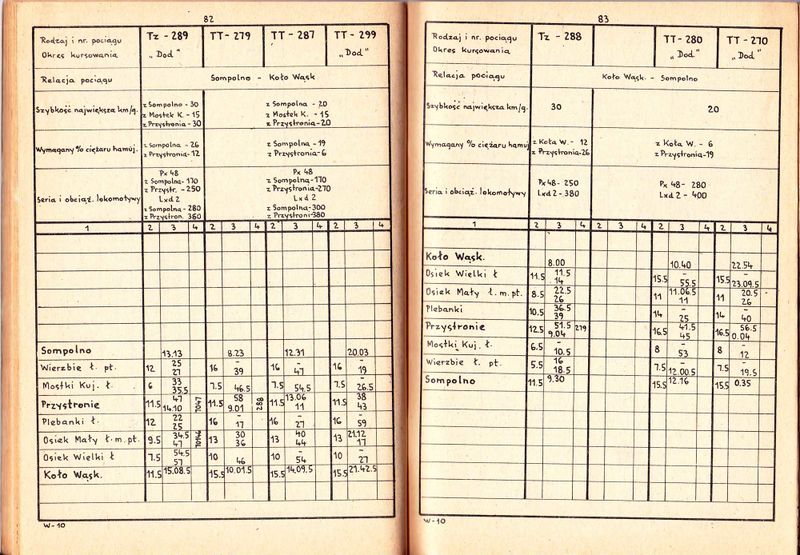 82
Rodzaj i nr. pociągu Tz - 289 TT - 279 TT - 287 TT - 299
Okres kursowania „Dod" „Dod"
Relacja pociągu Sompolno - Koło Wąsk
Szybkość największa km/g. z Sompolno - 30 z Sompolna - 20
z Mostek K. - 15 z Mostek K - 15
z Przystronia - 30 z Przystronia - 20
Wymagany % ciężaru hamuj. z Sompolna - 26 z Sompolna - 19
z Przystronia - 12 z Przystronia - 6
Seria i obciąż. lokomotywy Px 48 Px 48
z Sompolna - 170 z Sompolna - 170
z Przystr. - 250 z Przystronia - 270
Lxd 2 Lxd 2
z Sompolna - 280 z Sompolna - 300
z Przystron. 360 z Przystroni - 380
1 2 3 4 2 3 4 2 3 4 2 3 4
Sompolno 13.13 8.23 12.31 20.03
Wierzbie ł. pt. 12 25 27 16 - 39 16 - 47 16 - 19
Mostki Kuj. ł. 6 33 35.5 7.5 - 46.5 7.5 - 54.5 7.5 - 26.5
Przystronie 11.5 47 14.10 7047 11.5 58 9.01 288 11.5 13.06 11 11.5 38 43
Plebanki ł. 12 22 25 16 - 17 16 - 27 16 - 59
Osiek Mały ł.m.pt. 9.5 34.5 47 13 30 36 13 40 44 13 21.12 17
Osiek Wielki ł 7.5 54.5 57 10 - 46 10 - 54 10 - 27
Koło Wąsk. 11.5 15.08.5 15.5 10.01.5 15.5 14.09.5 15.5 21.42.5
W-10
83
Rodzaj i nr. pociągu Tz - 288 TT - 280 TT - 270
Okres kursowania „Dod" „Dod"
Relacja pociągu Koło Wąsk. - Sompolno
Szybkość największa km/g. 30 20
Wymagany % ciężaru hamuj z Koła W. - 12 z Koła W. - 6
z Przystronia - 26 z Przystronia - 19
Seria i obciąż. lokomotywy Px 48 - 250 Px 48 - 280
Lxd 2 - 380 Lxd 2 - 400
1 2 3 4 2 3 4 2 3 4 2 3 4
Koło Wąsk. 8.00 10.40 22.54
Osiek Wielki ł 11.5 11.5 14 15.5 - 55.5 15.5 - 23.09.5
Osiek Mały ł.m.pt. 8.5 22.5 26 11 11.06.5 11 11 20.5 26
Plebanki 10.5 36.5 39 14 - 25 14 - 40
Przystronie 12.5 51.5 9.04 279 16.5 41.5 45 16.5 56.5 0.04
Mostki Kuj. ł. 6.5 - 10.5 8 - 53 8 - 12
Wierzbie ł. pt. 5.5 16 18.5 7.5 - 12.00.5 7.5 - 19.5
Sompolno 11.5 9.30 15.5 12.16 15.5 0.35
W-10